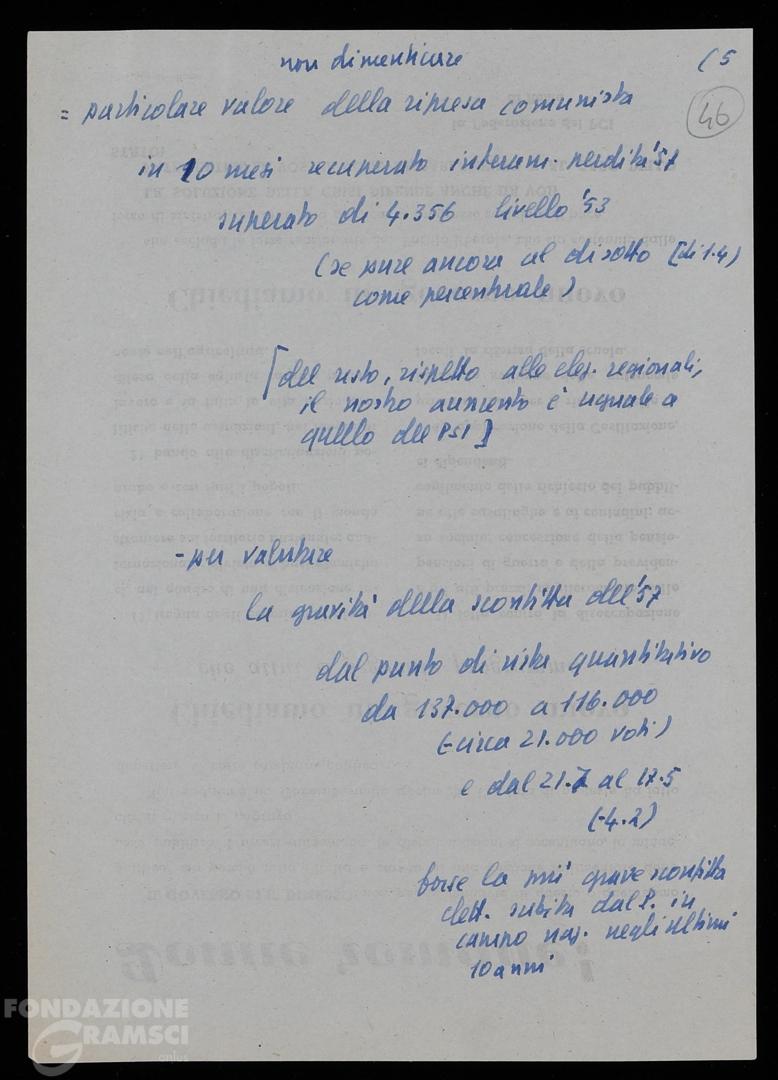 non dimenticare
(5
46
= particolare valore della ripresa comunista
in 10 mesi recuperato interam. perdita '57
superato di 4.356 livello '53
(se pure ancora al disotto [di 1.4)
come percentuale)
[del resto, rispetto alle elez. regionali,
il nostro aumento è uguale a
quello del PSI]
- per valutare
la gravità della sconfitta del '57
dal punto di vista quantitativo
da 137.000 a 116.000
(-circa 21.000 voti)
e dal 21.7 al 17.5
(-4.2)
forse la più grave sconfitta
elett. subita dal P. in
campo naz. negli ultimi
10 anni
FONDAZIONE
GRAMSCI
onlus